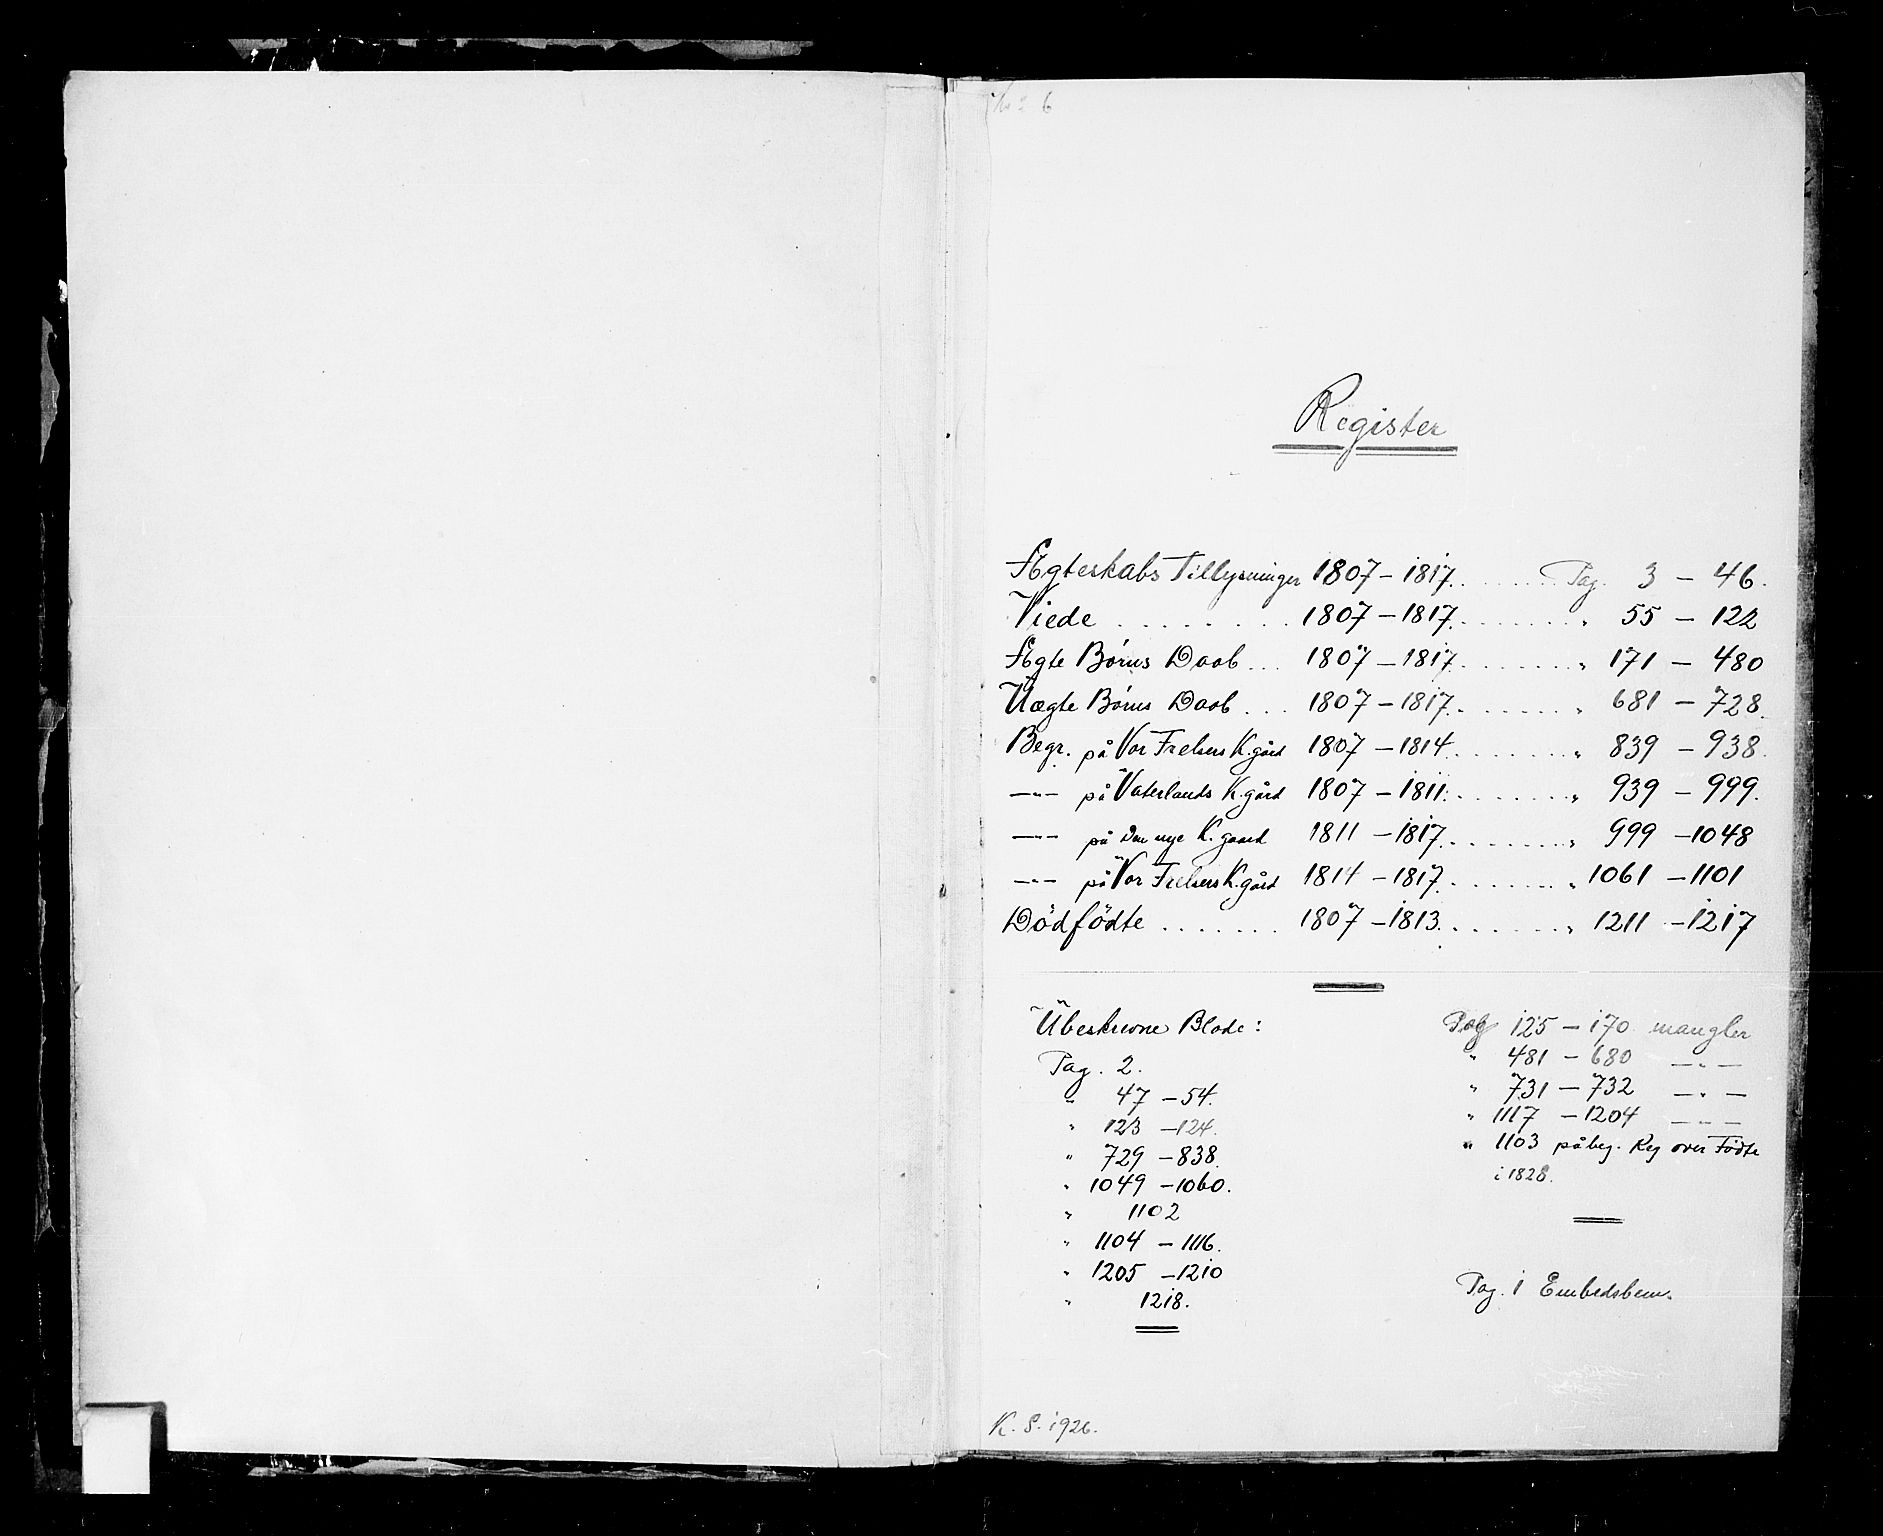 Register
Ægteskabs Tillysninger 1807 – 1817 . . . . . . Pag. 3 – 46.
Viede . . . . . . . . 1807 – 1817 . . . . . . " 55 – 122
Ægte Börns Daab . . . 1807 – 1817 . . . . . . " 171 – 480
Uægte Börns Daab . . . 1807 – 1817 . . . . . . " 681 – 728.
Begr. på Vor Frelsers K.gård 1807 – 1814 . . . . . . " 839 – 938.
—"— på Vaterlands K.gård 1807 – 1811 . . . . . . " 939 – 999.
—"— på Den nye K. gaard 1811 – 1817 . . . . . . " 999 – 1048
—"— på Vor Frelsers K.gård 1814 – 1817 . . . . . . " 1061 – 1101
Dödfödte . . . . . . . 1807 – 1813 . . . . . . " 1211 – 1217
Übeskrevne Blade:
Pag. 2.
" 47 – 54.
" 123 – 124.
" 729 – 838.
" 1049 – 1060.
" 1102
" 1104 – 1116.
" 1205 – 1210
" 1218.
Pag 125 – 170 mangler
" 481 – 680 —"—
" 731 – 732 —"—
" 1117 – 1204 —"—
" 1103 påbeg. Reg over Födte
i 1828.
Pag. 1 Embedsbem.
K. S. 1926.